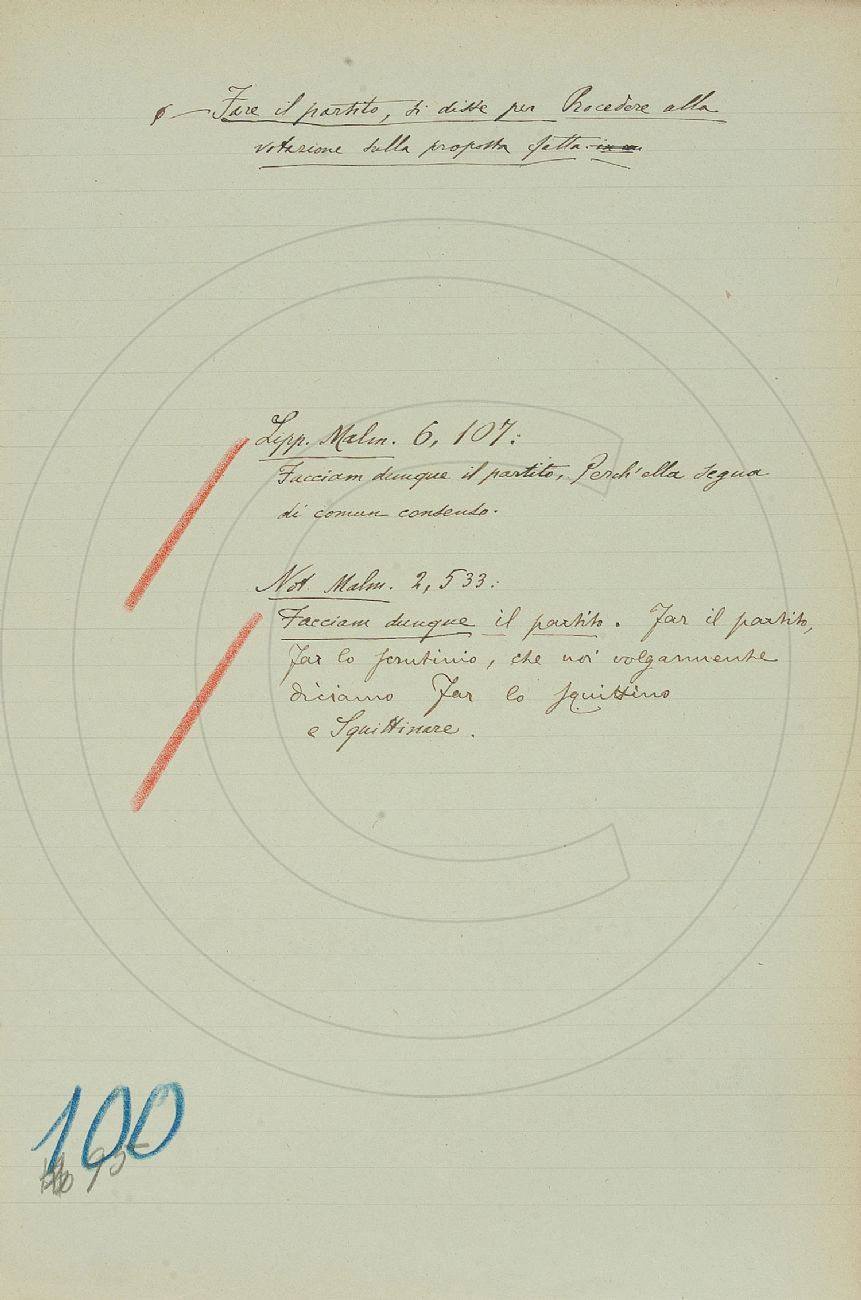 § — Fare il partito, si disse per Procedere alla
votazione sulla proposta fatta.
Lipp. Malm. 6, 107:
Facciam dunque il partito, Perch'ella segua
di comun consenso.
Not. Malm. 2, 533:
Facciam dunque il partito. Far il partito,
far lo scrutinio, che noi volgarmente
diciamo Far lo squittino
e Squittinare.
100
95